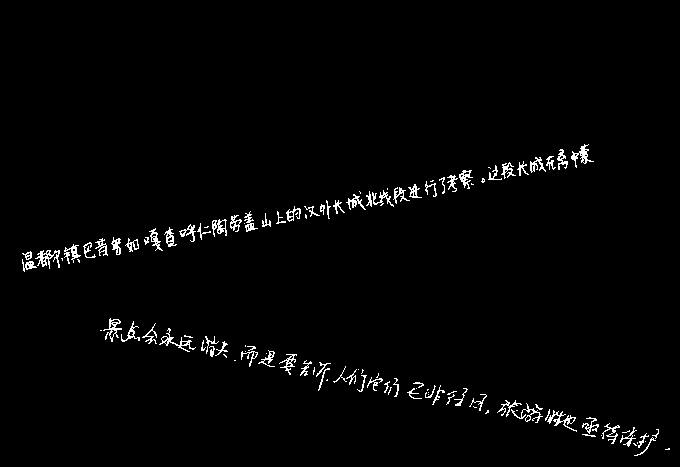 温都尔镇巴音努如嘎查呼仁陶劳盖山上的汉外长城北线段进行了考察。这段长城在离中蒙
景点会永远消失.而是要告诉人们它们已非往日,旅游胜地亟待保护.